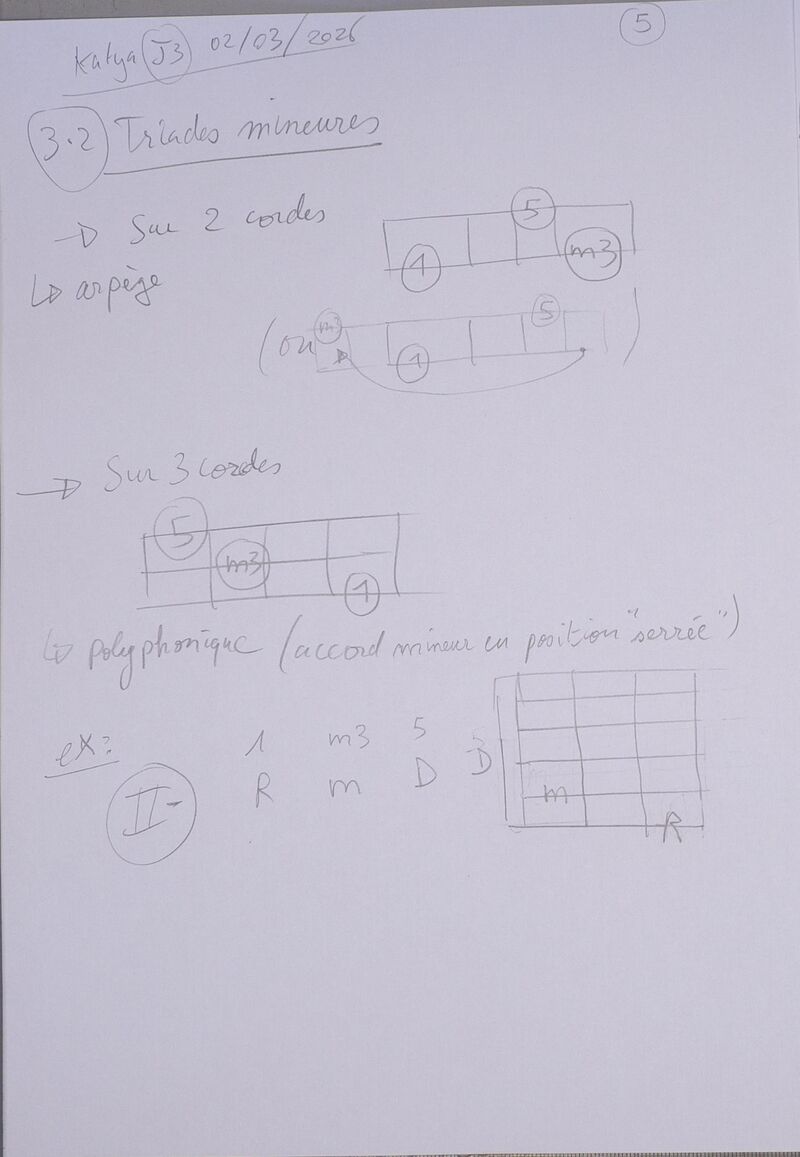 5
Katya J3 02/03/2026
3.2 Triades mineures
→ Sur 2 cordes
5
1 m3
↳ arpège
(ou m3 1 5 )
→ Sur 3 cordes
5
m3
1
↳ polyphonique (accord mineur en position "serrée")
ex:
1 m3 5
II- R m D
D
m
R